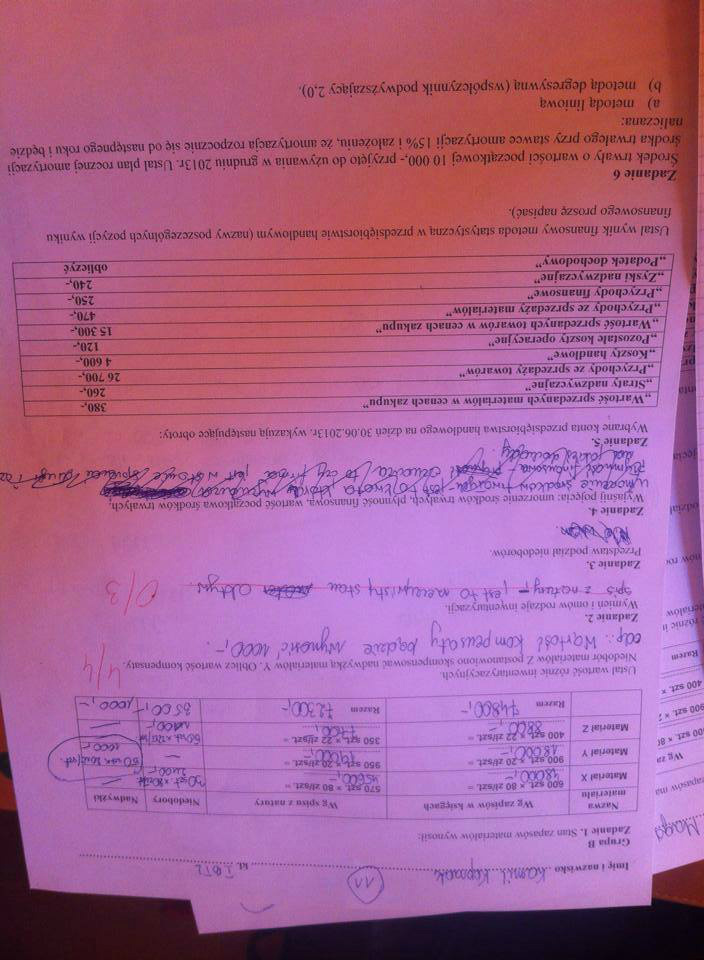 11
Imię i nazwisko Kamil kl. I BTL
Grupa B
Zadanie 1. Stan zapasów materiałów wynosił:
Nazwa materiału Wg zapisów w księgach Wg zapisów z natury Niedobory Nadwyżki
Materiał X 600 szt. × 80 zł/szt. = 48000,- 570 szt. × 80 zł/szt. = 45600,- 30szt × 80zł/szt 2400,- —
Materiał Y 900 szt. × 20 zł/szt. = 18000,- 950 szt. × 20 zł/szt. = 19000,- — 50 szt × 20zł/szt. 1000,-
Materiał Z 400 szt. × 22 zł/szt. = 8800,- 350 szt. × 22 zł/szt. = 7700,- 50szt × 22zł/szt 1100,- —
Razem 74800,- Razem 72300,- 3500,- 1000,-
Ustal wartość różnic inwentaryzacyjnych.
Niedobór materiałów Z postanowiono skompensować nadwyżką materiałów Y. Oblicz wartość kompensaty.
4/4
odp.: Wartość kompensaty będzie wynosić 1000,-.
Zadanie 2.
Wymień i omów rodzaje inwentaryzacji.
spis z natury – jest to rzeczywisty stan
0/3
Zadanie 3.
Przedstaw podział niedoborów.
Zadanie 4.
Wyjaśnij pojęcia: umorzenie środków trwałych, płynność finansowa, wartość początkowa środków trwałych,
umorzenie środków trwałych – jest to kwota
Płynność finansowa – to czy firma jest w stanie spłacać długi
Zadanie 5.
Wybrane konta przedsiębiorstwa handlowego na dzień 30.06.2013r. wykazują następujące obroty:
„Wartość sprzedanych materiałów w cenach zakupu” 380,-
„Straty nadzwyczajne” 260,-
„Przychody ze sprzedaży towarów” 26 700,-
„Koszty handlowe” 4 600,-
„Pozostałe koszty operacyjne” 120,-
„Wartość sprzedanych towarów w cenach zakupu” 15 300,-
„Przychody ze sprzedaży materiałów” 470,-
„Przychody finansowe” 250,-
„Zyski nadzwyczajne” 240,-
„Podatek dochodowy” obliczyć
Ustal wynik finansowy metodą statystyczną w przedsiębiorstwie handlowym (nazwy poszczególnych pozycji wyniku
finansowego proszę napisać).
Zadanie 6
Środek trwały o wartości początkowej 10 000,- przyjęto do używania w grudniu 2013r. Ustal plan rocznej amortyzacji
środka trwałego przy stawce amortyzacji 15% i założeniu, że amortyzacja rozpocznie się od następnego roku i będzie
naliczana:
a) metodą liniową
b) metodą degresywną (współczynnik podwyższający 2,0).